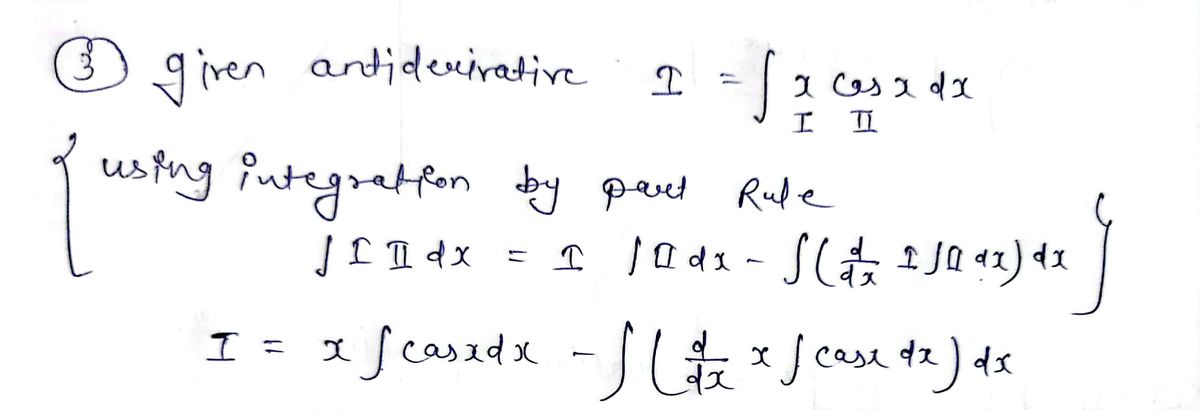 ③ given antiderivative I = ∫ x cos x dx
I II
{ using integration by part Rule
∫ I II dx = I ∫ II dx - ∫( d/dx I ∫ II dx) dx }
I = x ∫ cos x dx - ∫( d/dx x ∫ cos x dx) dx